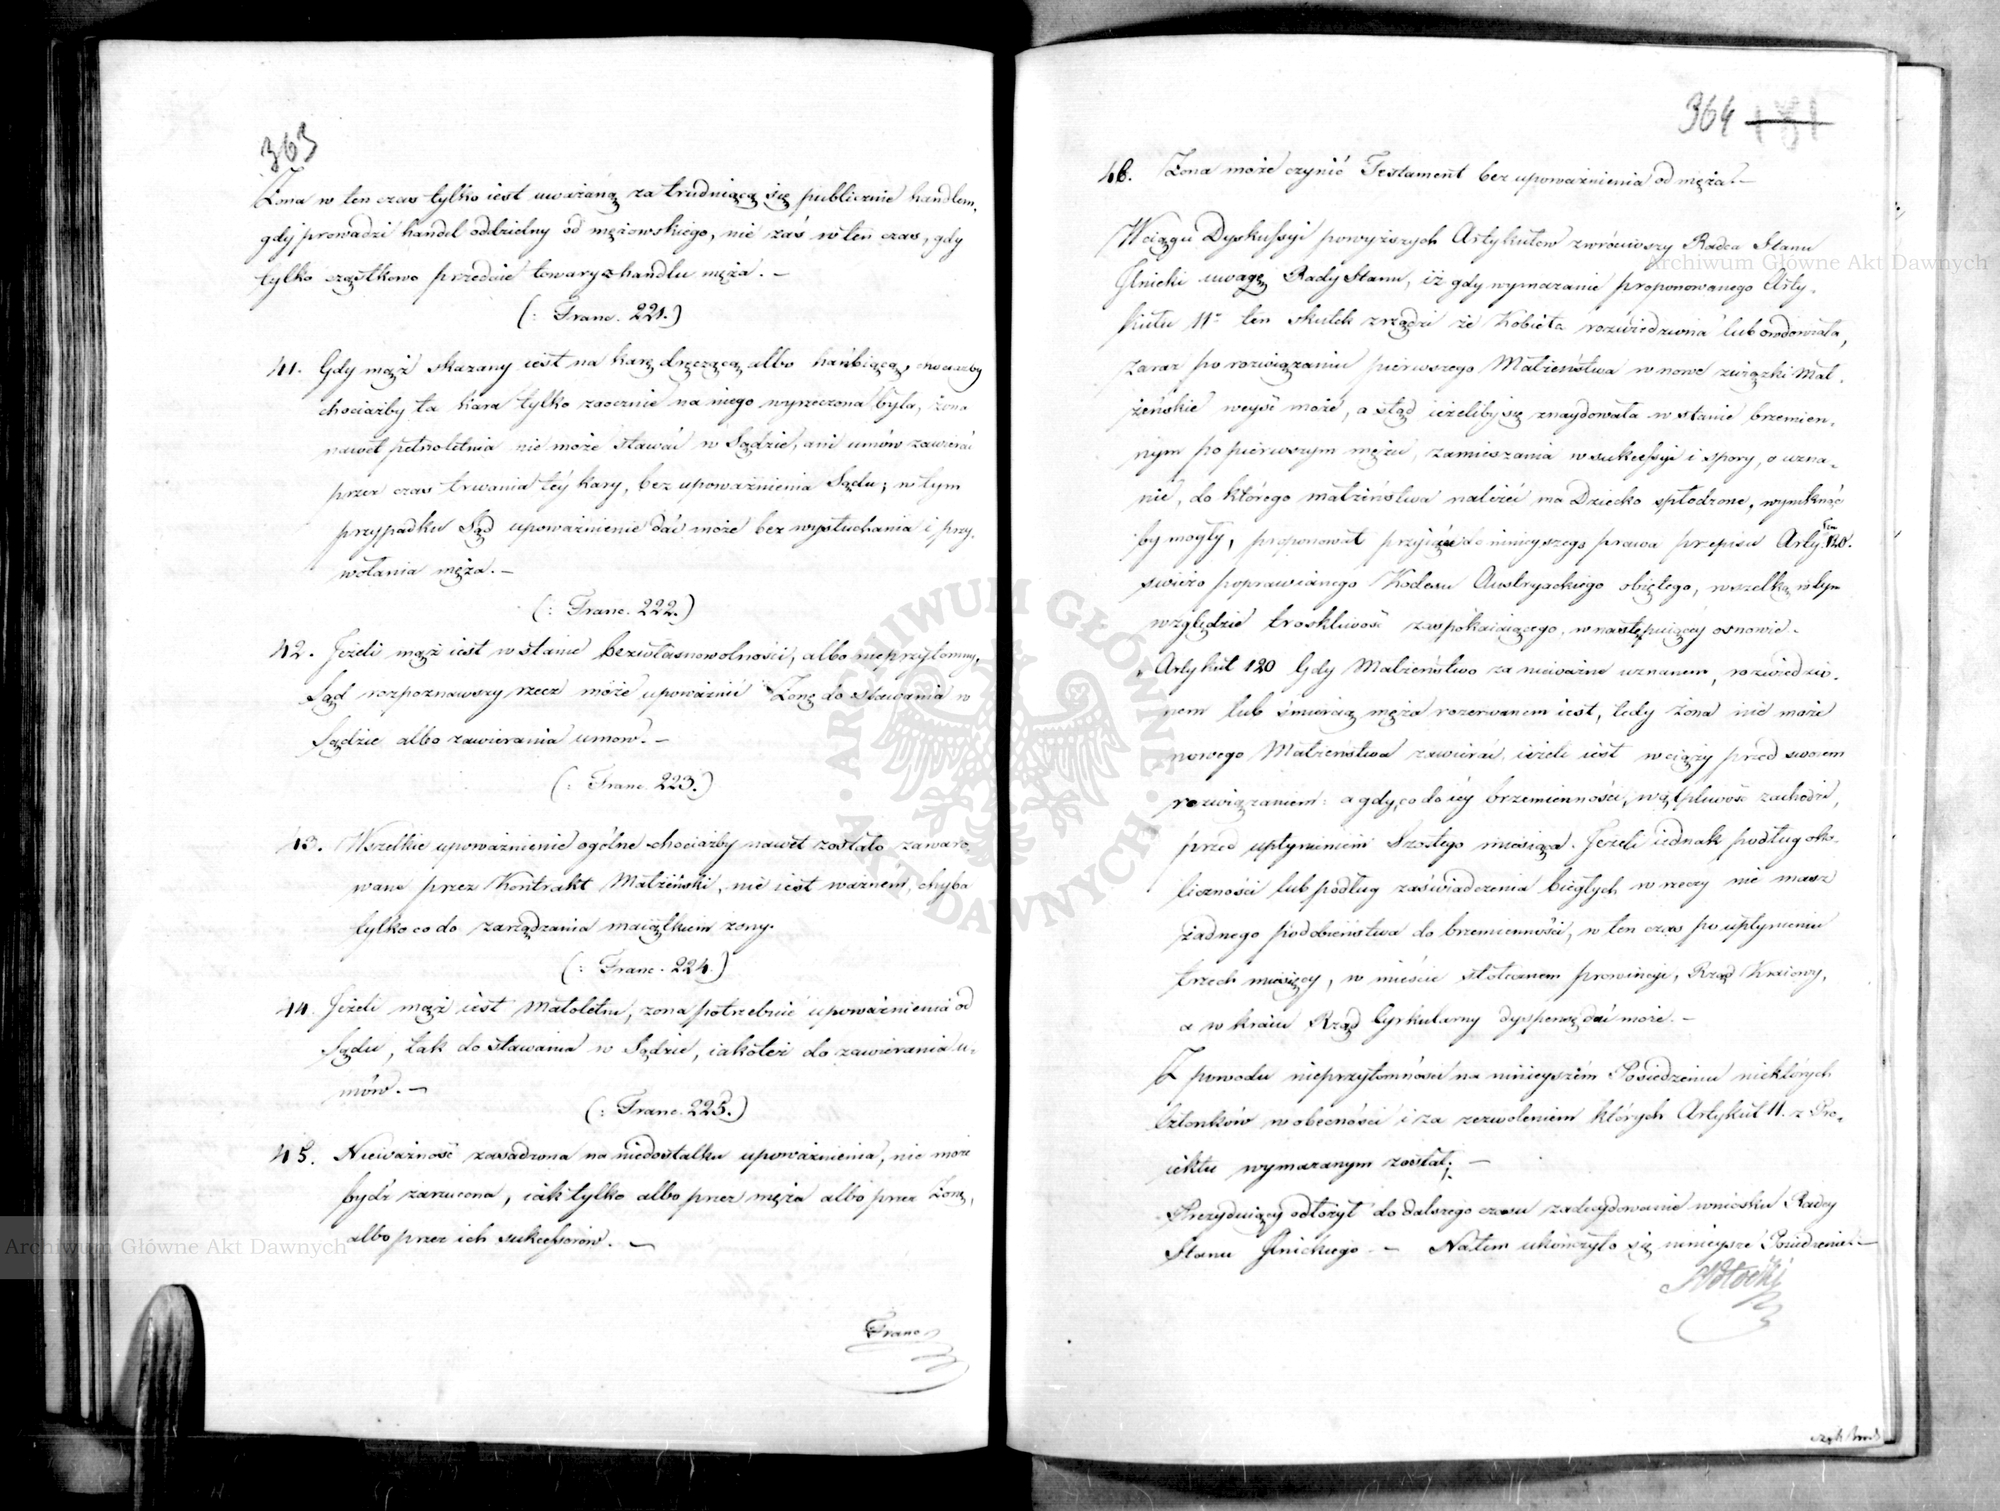 363
Żona w ten czas tylko iest uważaną za trudniącą się publicznie handlem,
gdy prowadzi handel oddzielny od mężowskiego, nie zaś w ten czas, gdy
tylko cząstkowo przedaie towary z handlu męża. —
(: Franc. 221.)
41. Gdy mąż skazany iest na karę dręczącą albo hańbiącą,
chociażby ta kara tylko zaocznie na niego wyrzeczona była, żona
nawet pełnoletnia nie może stawać w Sądzie, ani umów zawierać
przez czas trwania téy kary, bez upoważnienia Sądu; w tym
przypadku Sąd upoważnienie dać może bez wysłuchania i przy-
wołania męża. —
(: Franc. 222.)
42. Jeżeli mąż iest w stanie bezwłasnowolności, albo nieprzytomny,
Sąd rozpoznawszy rzecz może upoważnić Żonę do stawania w
Sądzie albo zawierania umów. —
(: Franc. 223.)
43. Wszelkie upoważnienie ogólne chociażby nawet zostało zawaro-
wane przez Kontrakt Małżeński, nie iest ważnem, chyba
tylko co do zarządzania maiątkiem żony.
(: Franc. 224.)
44. Jeżeli mąż iest Małoletni, żona potrzebuie upoważnienia od
Sądu, tak do stawania w Sądzie, iakoteż do zawierania u-
mów. —
(: Franc. 225.)
45. Nieważność zasadzona na niedostatku upoważnienia, nie może
bydź zarzucona, iak tylko albo przez męża albo przez Żonę,
albo przez ich sukcessorów. —
Franc
364 181
46. Żona może czynić Testament bez upoważnienia od męża. —
W ciągu Dyskussyi powyższych Artykułów zwróciwszy Radca Stanu
Glnicki uwagę Rady Stanu, iż gdy wymazanie proponowanego Arty-
kułu 11º ten skutek zrządzi że Kobieta rozwiedziona lub owdowiała,
zaraz po rozwiązaniu pierwszego Małżeństwa w nowe związki Mał-
żeńskie weyść może, a stąd ieżeliby się znaydowała w stanie brzemien-
nym po pierwszym mężu, zamieszania w sukcessyi i spory, o uzna-
nie, do którego małżeństwa należeć ma Dziecko spłodzone, wyniknąć
by mogły, proponował przyięcie do ninieyszego prawa przepisu Arty: 120.
świeżo poprawianego Kodexu Austryackiego obiętego, wszelką w tym
względzie troskliwość zaspokaiaiącego, w następuiącéy osnowie.
„Artykuł 120 Gdy Małżeństwo za nieważne uznanem, rozwiedzio-
nem lub śmiercią męża rozerwanem iest, tedy żona nie może
nowego Małżeństwa zawierać, ieżeli iest w ciąży przed swoiem
rozwiązaniem: a gdy, co do iéy brzemienności, wątpliwość zachodzi,
przed upłynieniem Szóstego miesiąca. Jeżeli iednak podług oko-
liczności lub podług zaświadczenia biegłych w rzeczy nie masz
żadnego podobieństwa do brzemienności, w ten czas po upłynieniu
trzech miesięcy, w mieście stołecznem prowincyi, Rząd Kraiowy,
a w kraiu Rząd Cyrkularny dyspensę dać może. —
Z powodu nieprzytomności na ninieyszém Posiedzeniu niektórych
Członków w obecności i za zezwoleniem których Artykuł 11. z Pro-
iektu wymazanym został; —
Prezyduiący odłożył do dalszego czasu zadecydowanie wniosku Radcy
Stanu Glnickiego. — Na tem ukończyło się ninieysze Posiedzenie. —
Potocki
Archiwum Główne Akt Dawnych
Archiwum Główne Akt Dawnych
ARCHIWUM GŁÓWNE · AKT DAWNYCH ·